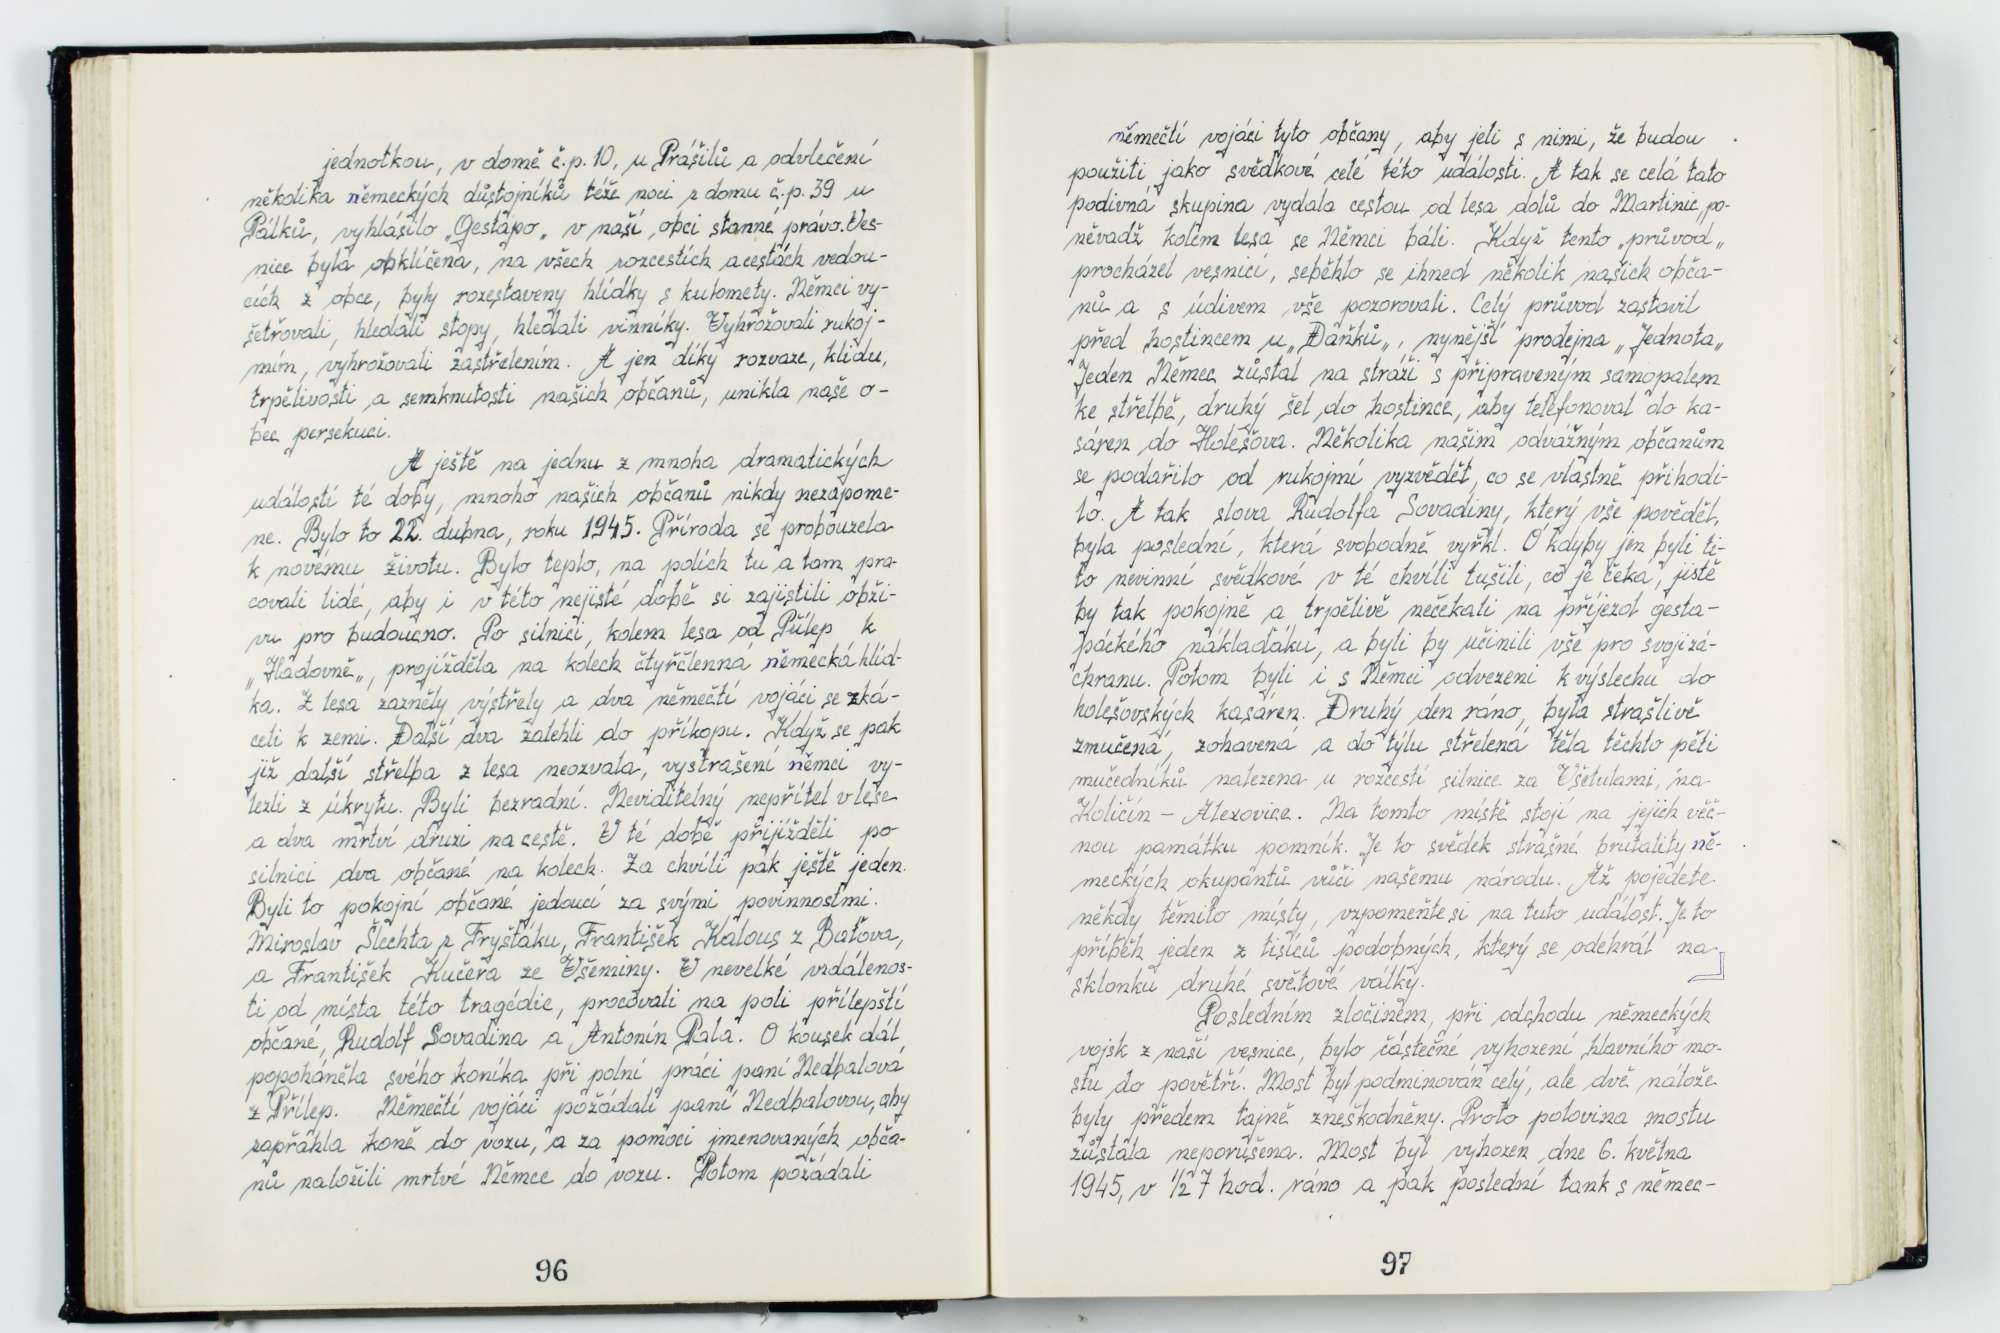 jednotkou, v domě č.p. 10, u Prášilů a odvlečení
několika německých důstojníků téže noci z domu č.p. 39 u
Pálků, vyhlásilo „Gestapo„ v naší obci stanné právo. Ves-
nice byla obklíčena, na všech rozcestích a cestách vedou-
cích z obce, byly rozestaveny hlídky s kulomety. Němci vy-
šetřovali, hledali stopy, hledali vinníky. Vyhrožovali rukoj-
mím, vyhrožovali zastřelením. A jen díky rozvaze, klidu,
trpělivosti a semknutosti našich občanů, unikla naše o-
bec persekuci.
A ještě na jednu z mnoha dramatických
událostí té doby, mnoho našich občanů nikdy nezapome-
ne. Bylo to 22. dubna, roku 1945. Příroda se probouzela
k novému životu. Bylo teplo, na polích tu a tam pra-
covali lidé, aby i v této nejisté době si zajistili obži-
vu pro budoucno. Po silnici, kolem lesa od Přílep k
„Hádovně„, projížděla na kolech čtyřčlenná německá hlíd-
ka. Z lesa zazněly výstřely a dva němečtí vojáci se zká-
celi k zemi. Další dva zalehli do příkopu. Když se pak
již další střelba z lesa neozvala, vystrašení němci vy-
lezli z úkrytu. Byli bezradní. Neviditelný nepřítel v lese
a dva mrtví druzi na cestě. V té době přijížděli po
silnici dva občané na kolech. Za chvíli pak ještě jeden.
Byli to pokojní občané jedoucí za svými povinnostmi.
Miroslav Šlechta z Fryštáku, František Kalous z Baťova,
a František Kučera ze Všeminy. V nevelké vzdálenos-
ti od místa této tragédie, pracovali na poli přílepští
občané, Rudolf Sovadina a Antonín Pala. O kousek dál
popoháněla svého koníka při polní práci paní Nedbalová
z Přílep. Němečtí vojáci požádali paní Nedbalovou, aby
zapřáhla koně do vozu, a za pomoci jmenovaných obča-
nů naložili mrtvé Němce do vozu. Potom požádali
96
němečtí vojáci tyto občany, aby jeli s nimi, že budou
použiti jako svědkové celé této události. A tak se celá tato
podivná skupina vydala cestou od lesa dolů do Martinic, po-
něvadž kolem lesa se Němci báli. Když tento „průvod„
procházel vesnicí, seběhlo se ihned několik našich obča-
nů a s údivem vše pozorovali. Celý průvod zastavil
před hostincem u „Daňků„, nynější prodejna „Jednota„
Jeden Němec zůstal na stráži s připraveným samopalem
ke střelbě, druhý šel do hostince, aby telefonoval do ka-
sáren do Holešova. Několika našim odvážným občanům
se podařilo od rukojmí vyzvědět, co se vlastně přihodi-
lo. A tak slova Rudolfa Sovadiny, který vše pověděl,
byla poslední, která svobodně vyřkl. Ó kdyby jen byli ti-
to nevinní svědkové v té chvíli tušili, co je čeká, jistě
by tak pokojně a trpělivě nečekali na příjezd gesta-
páckého náklaďáku, a byli by učinili vše pro svoji zá-
chranu. Potom byli i s Němci odvezeni k výslechu do
holešovských kasáren. Druhý den ráno, byla strašlivě
zmučená, zohavená a do týlu střelená těla těchto pěti
mučedníků nalezena u rozcestí silnice za Všetulami, na
Količín – Alexovice. Na tomto místě stojí na jejich věč-
nou památku pomník. Je to svědek strašné brutality ně-
meckých okupantů vůči našemu národu. Až pojedete
někdy těmito místy, vzpomeňte si na tuto událost. Je to
příběh jeden z tisíců podobných, který se odehrál na
sklonku druhé světové války.
Posledním zločinem, při odchodu německých
vojsk z naší vesnice, bylo částečné vyhození hlavního mo-
stu do povětří. Most byl podminován celý, ale dvě nálože
byly předem tajně zneškodněny. Proto polovina mostu
zůstala neporušena. Most byl vyhozen dne 6. května
1945, v ½ 7 hod. ráno a pak poslední tank s němec-
97